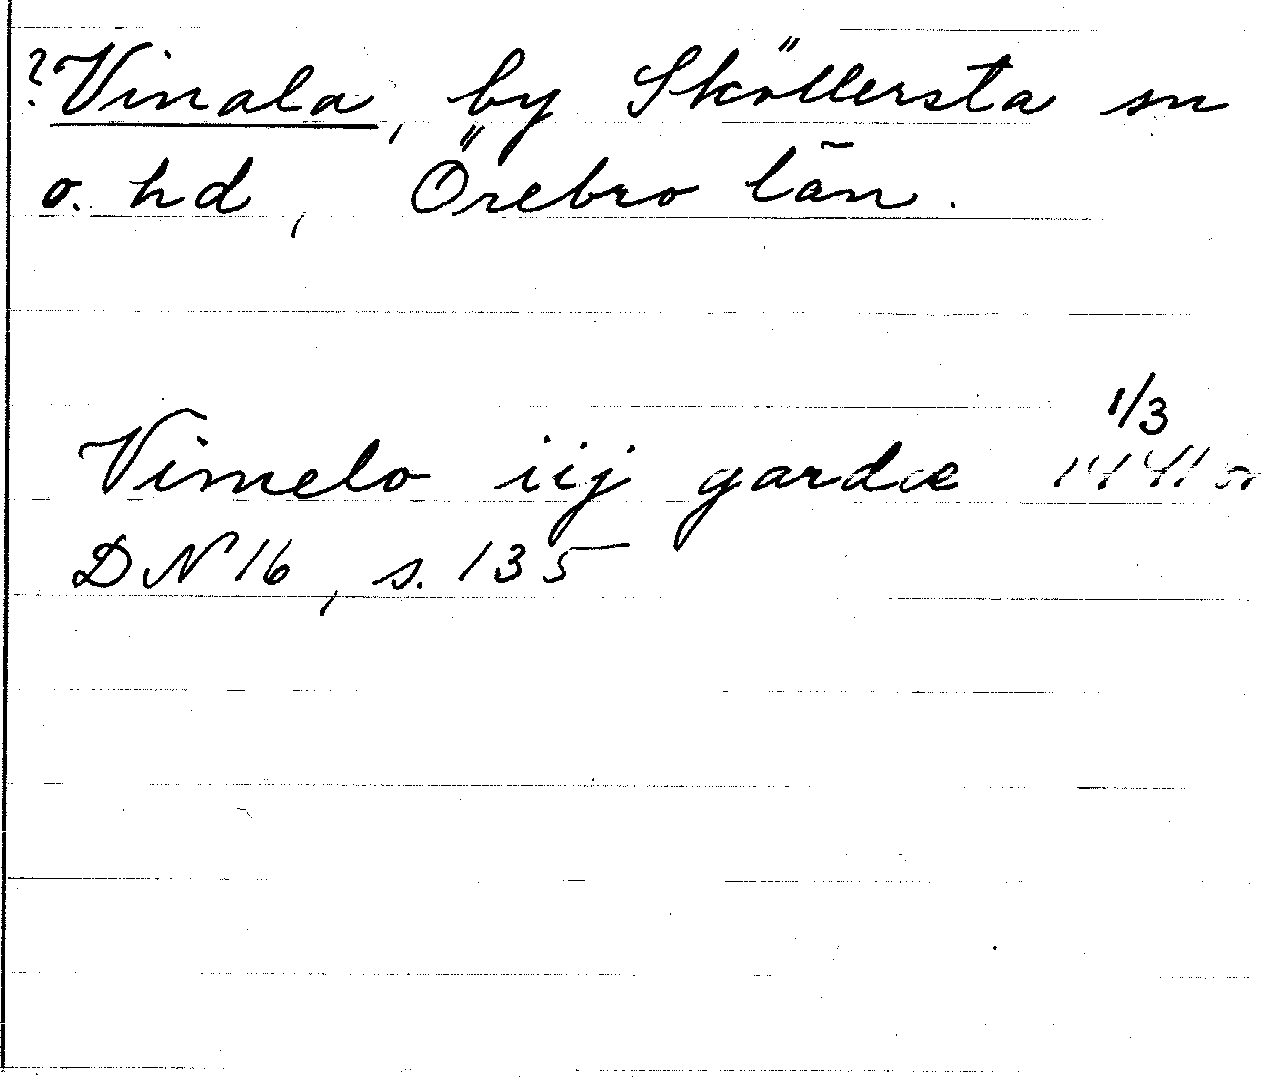 ? Vinala, by Sköllersta sn
o. hd, Örebro län.
1/3
Vimelo iij gardæ 1441 or
DN 16, s. 135